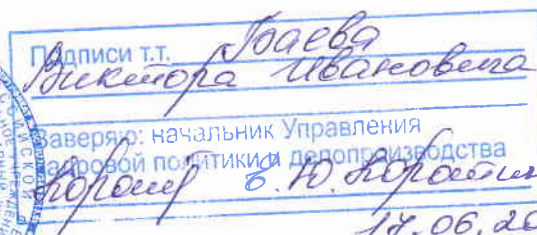 Подписи т.т. Баева
Виктора Ивановича
Заверяю: начальник Управления
кадровой политики и делопроизводства
Е. Ю.
17.06.20